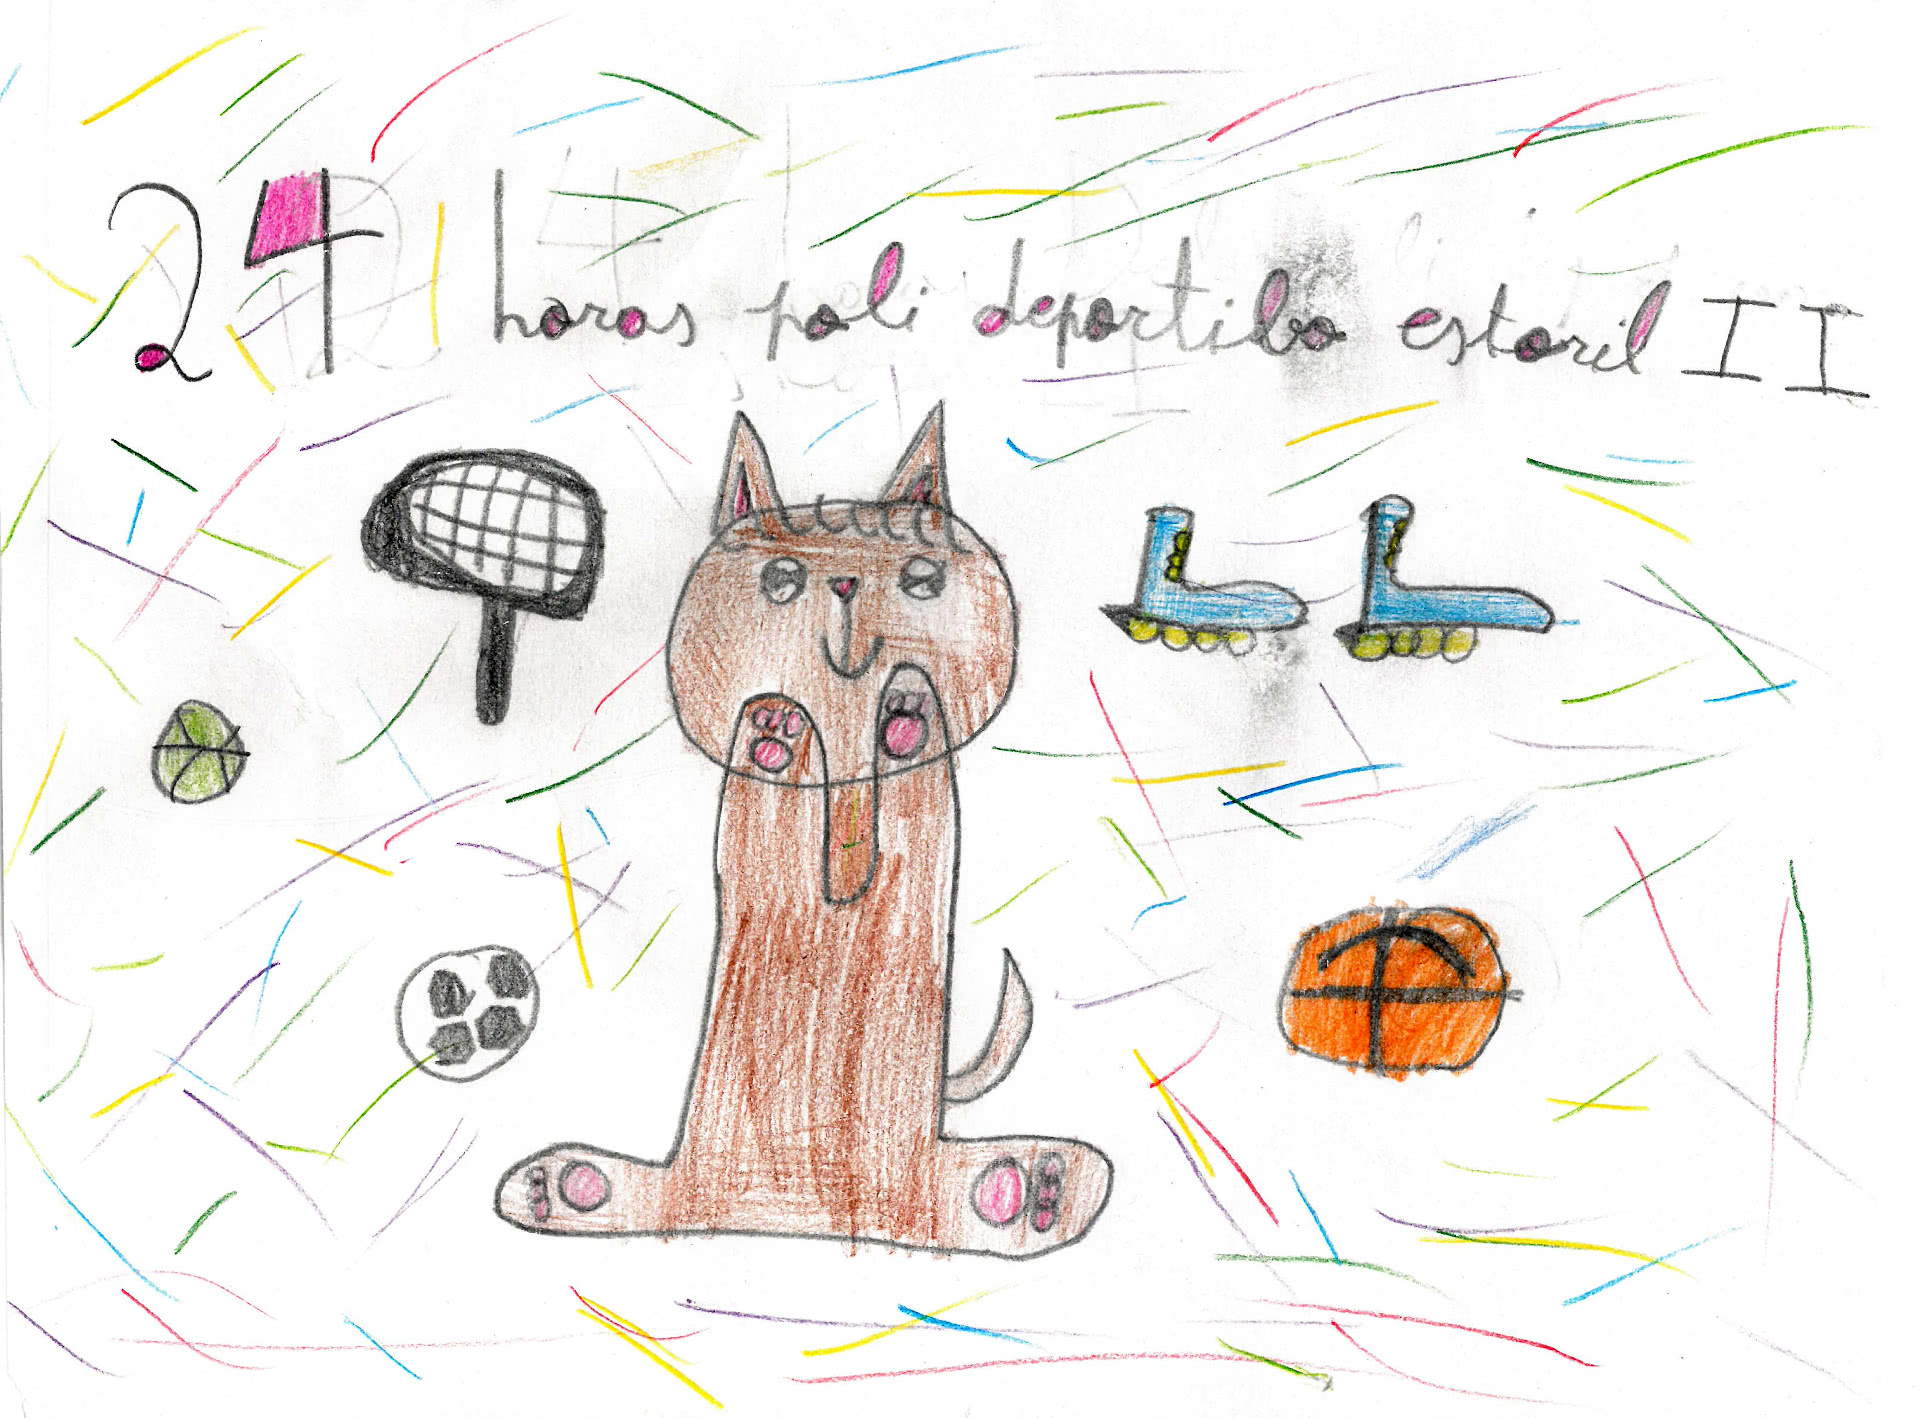 24 horas poli deportibo estoril II